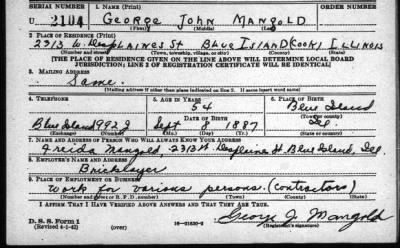 SERIAL NUMBER 1. NAME (Print) ORDER NUMBER
U 2104 GEORGE JOHN MANGOLD
(First) (Middle) (Last)
2. PLACE OF RESIDENCE (Print)
2313 W. DesPLAINES St BLUE ISLAND (COOK) ILLINOIS
(Number and street) (Town, township, village, or city) (County) (State)
[THE PLACE OF RESIDENCE GIVEN ON THE LINE ABOVE WILL DETERMINE LOCAL BOARD
JURISDICTION; LINE 2 OF REGISTRATION CERTIFICATE WILL BE IDENTICAL]
3. MAILING ADDRESS
Same.
(Mailing address if other than place indicated on line 2. If same insert word same)
4. TELEPHONE 5. AGE IN YEARS 6. PLACE OF BIRTH
54 Blue Island
DATE OF BIRTH (Town or county)
Blue Island 992 J Sept 8 1887 Ill.
(Exchange) (Number) (Mo.) (Day) (Yr.) (State or country)
7. NAME AND ADDRESS OF PERSON WHO WILL ALWAYS KNOW YOUR ADDRESS
Frieda Mangold, 2313 W. Desplaine St. Blue Island, Ill.
8. EMPLOYER'S NAME AND ADDRESS
Bricklayer
9. PLACE OF EMPLOYMENT OR BUSINESS
Work for various persons. (contractors)
(Number and street or R. F. D. number) (Town) (County) (State)
I AFFIRM THAT I HAVE VERIFIED ABOVE ANSWERS AND THAT THEY ARE TRUE.
George J. Mangold
D. S. S. Form 1 (Revised 4-1-42) (over) 16—21630-2 (Registrant's signature)